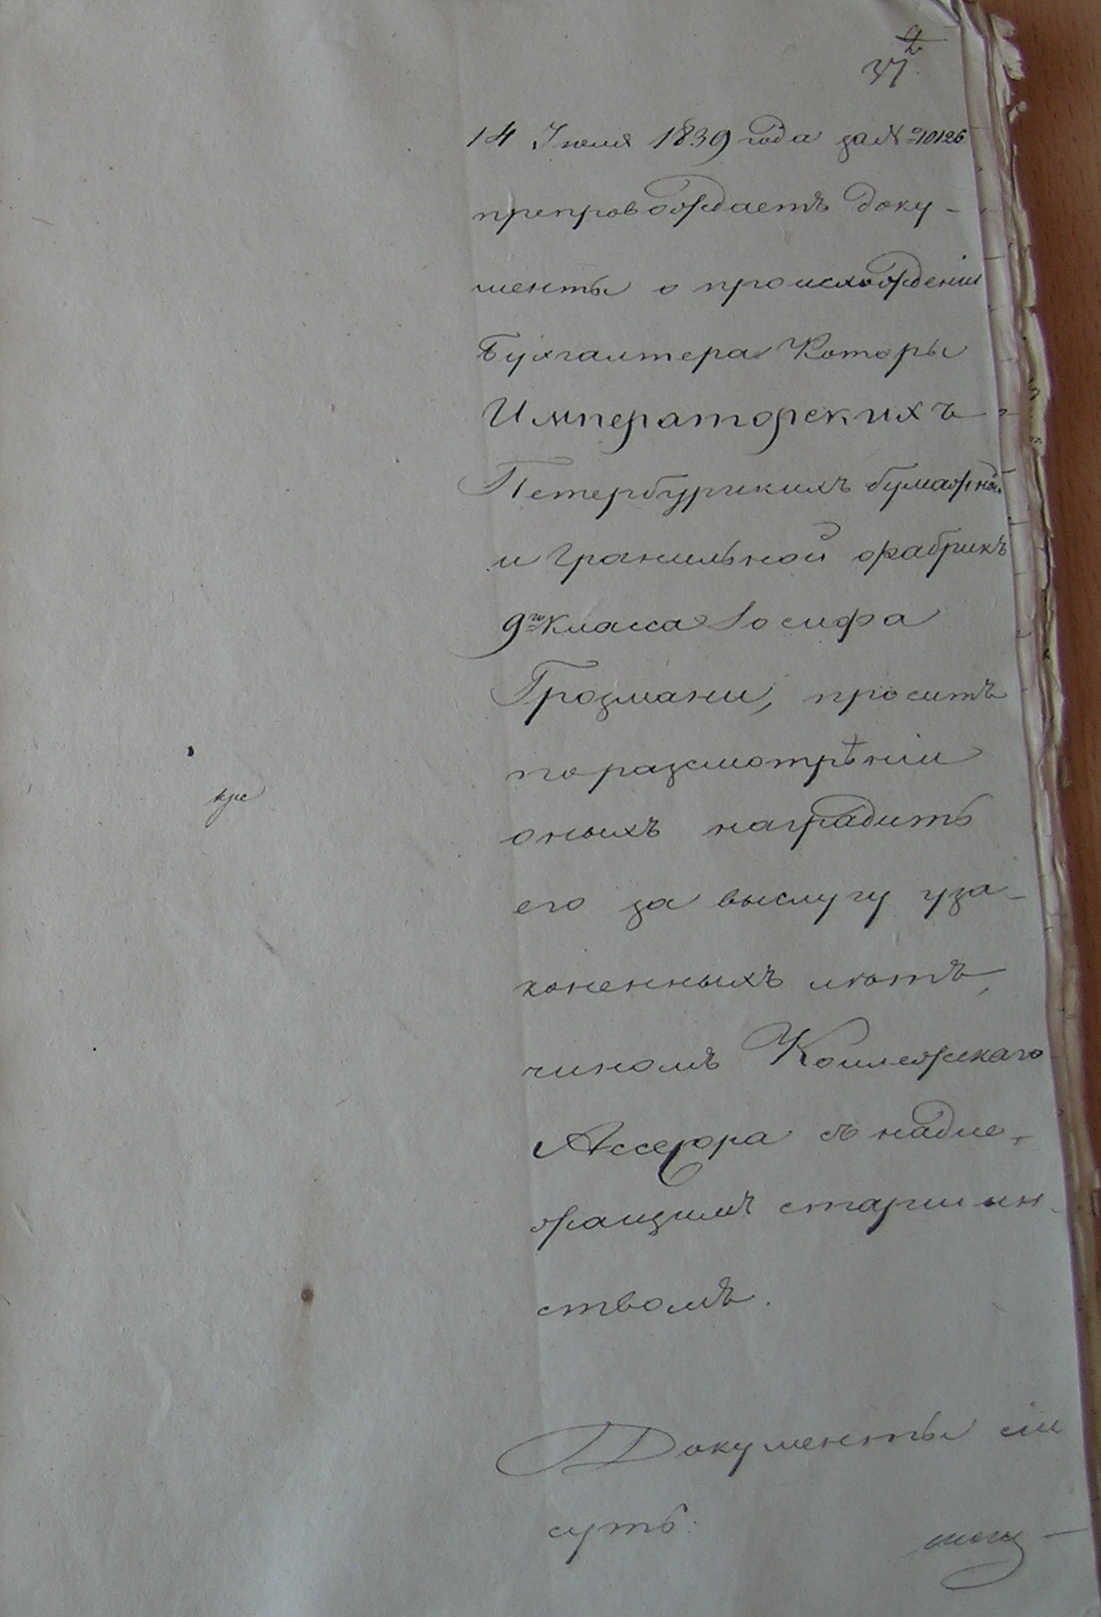 37
14 Июля 1839 года за № 10126
препровождаетъ доку-
менты о происхожденіи
Бухгалтера Конторы
Императорскихъ
Петербургскихъ бумажной
и Гранильной фабрикъ
9го класса Іосифа
Грозмани, проситъ
по разсмотрѣніи
оныхъ наградить
его за выслугу уза-
коненныхъ лѣтъ,
чиномъ Коллежскаго
Ассесора съ надле-
жащимъ старшин-
ствомъ.
Документы сіи
суть: